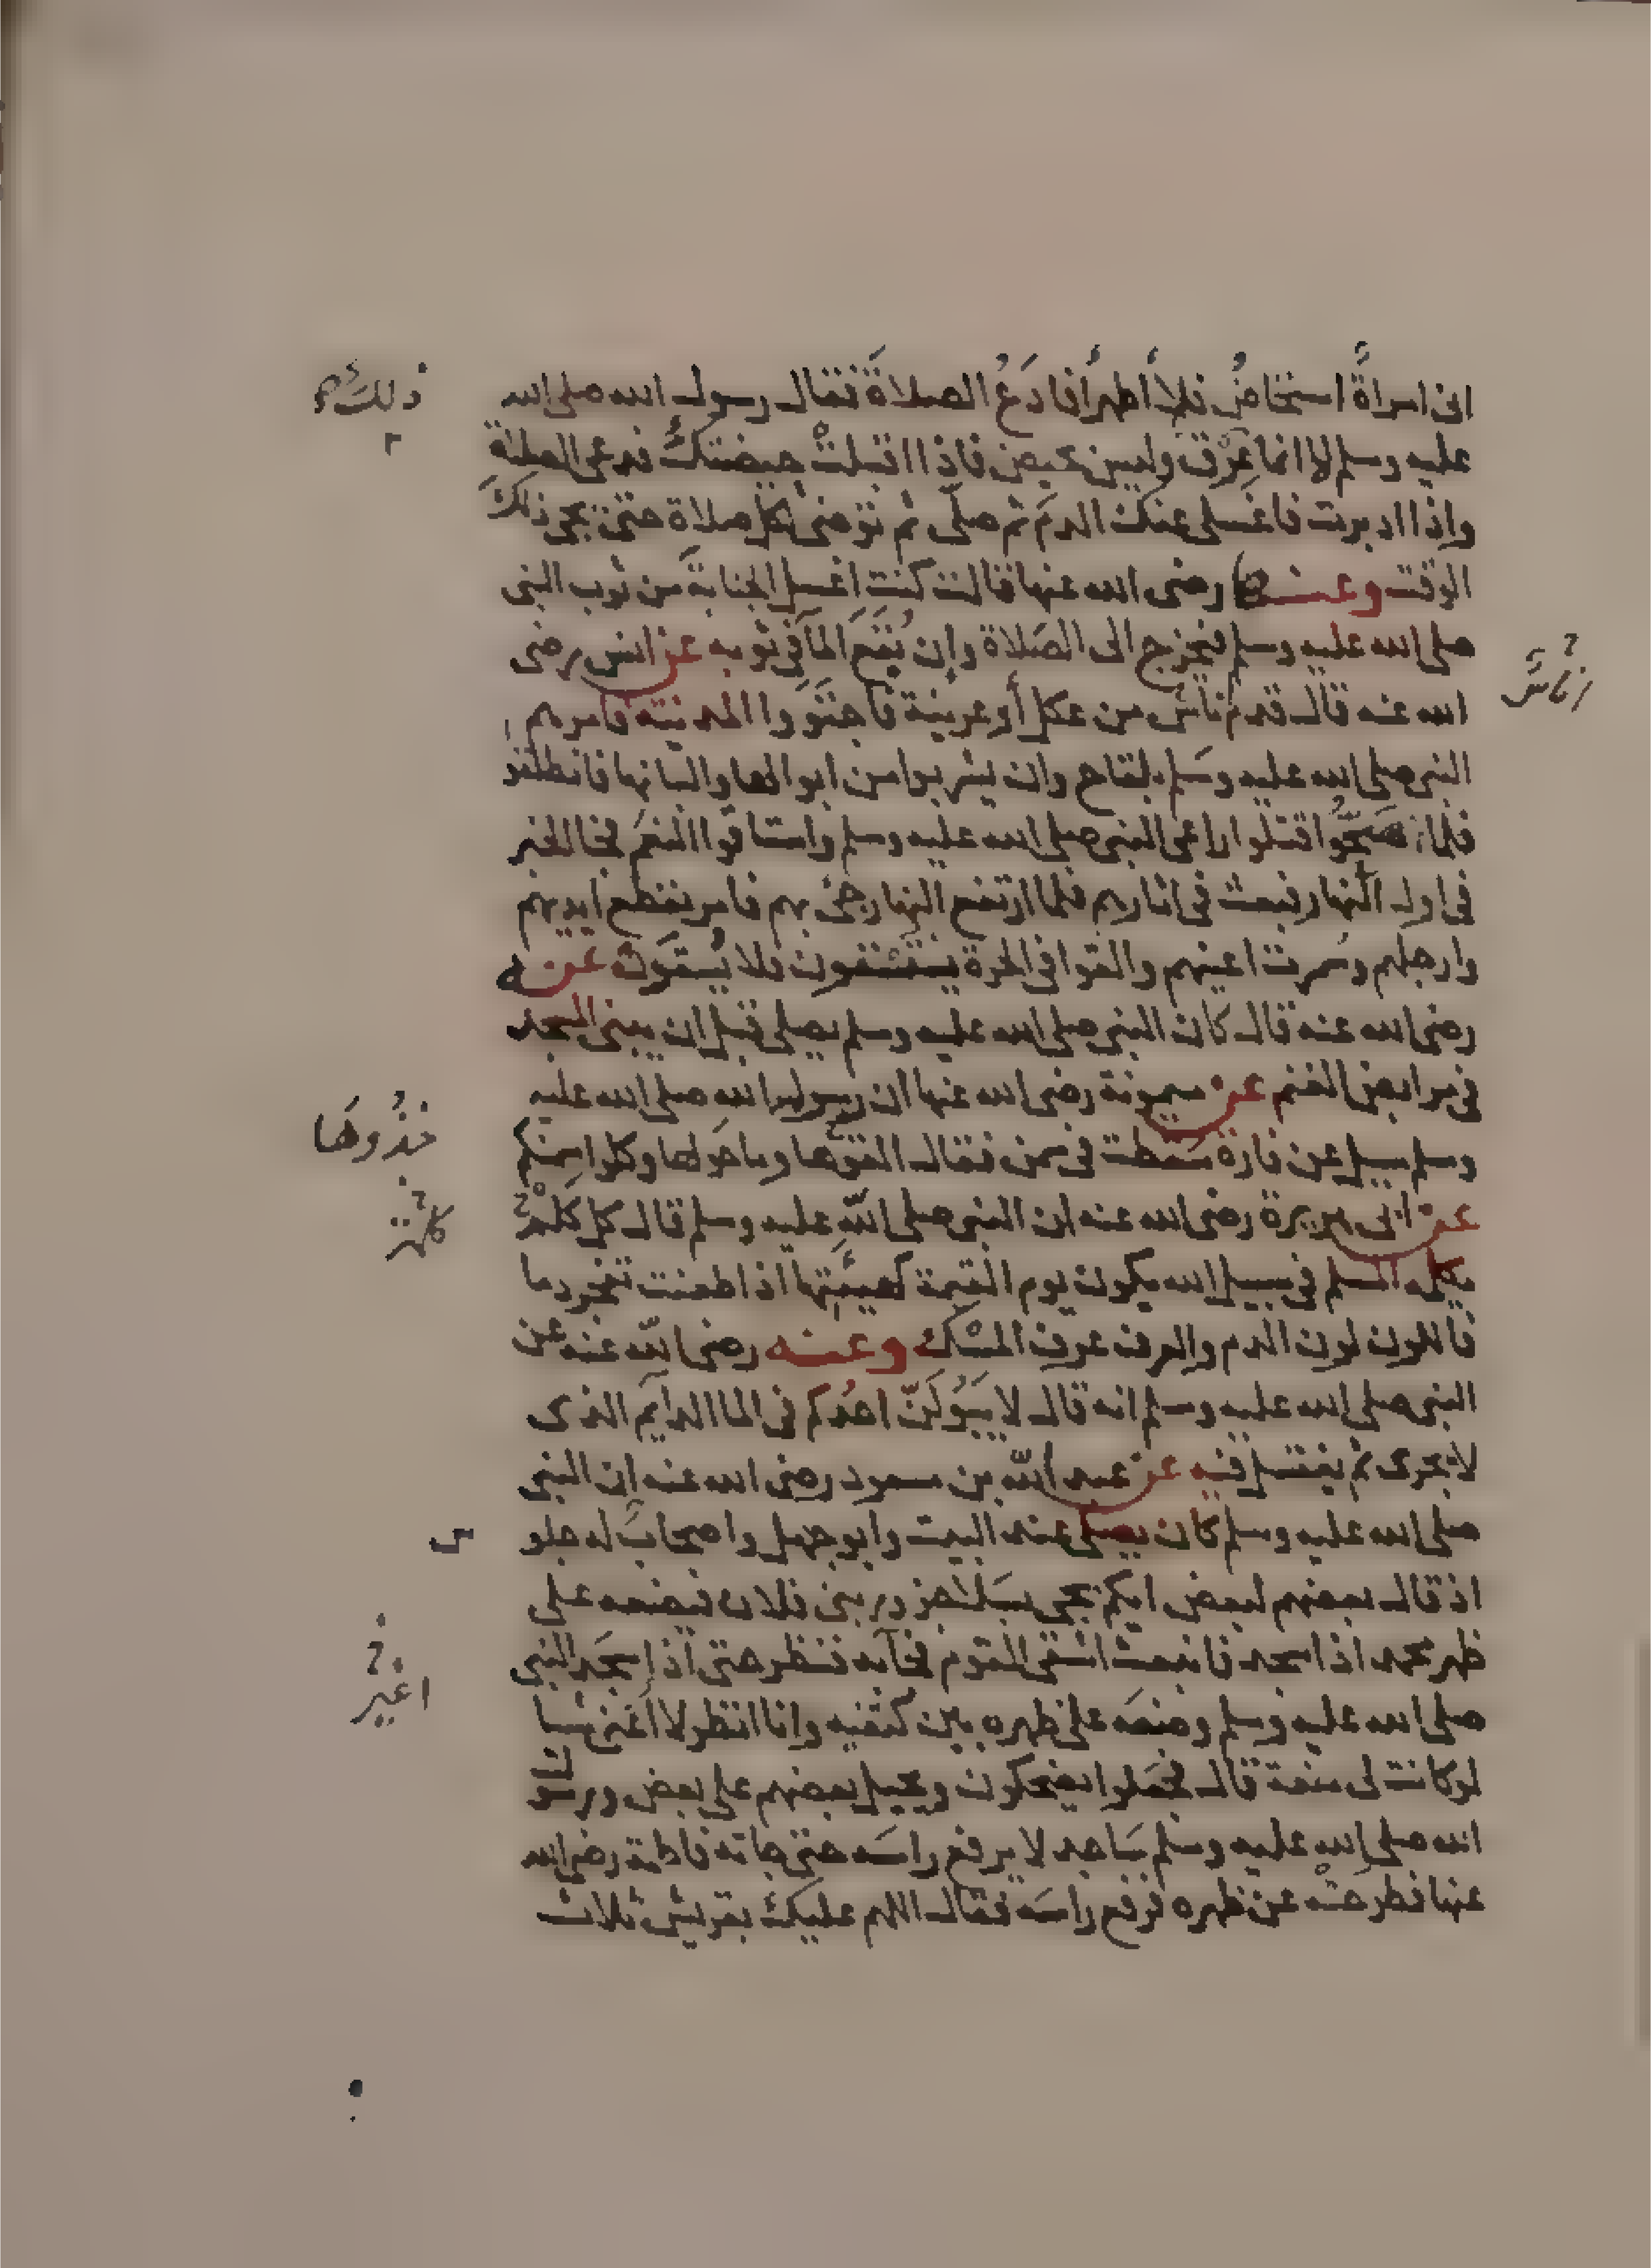 انى امراةً استحاضُ فلا أطهر أفادَعُ الصلاةَ فقال رسول الله صلى الله
ذلكِ
عليه وسلم لا انما عِرْق وليس بحيض فاذا اقبلتْ حيضتكِ فدعى الصلاة
واذا ادبرت فاغسلى عنك الدمَ ثم صلّى ثم توضئ لكل صلاة حتى يجى ذلكَ
الوقت وعنها رضى الله عنها قالت كنت اغسل الجنابةَ من ثوب النبى
صلى الله عليه وسلم فيخرج الى الصَلاة وان بُقَعَ الماَ فى ثوبه عن انس رضى
الله عنه قال قدم اناس من عكل أو عرينة فاجتَوَوا المدينة فامرهم
ناسٌ
النبى صلى الله عليه وسَلم بلقاح وان يشربوا من ابوالها والبانها فانطلقو
فلما صَحُّوا قتلوا راعى النبى صلى الله عليه وسلم واستاقوا النعم فجا الخبر
فى اول النهار فبعث فى اثارهم فلما ارتفع النهار جئ بهم فامر بقطع ايديهم
وارجلهم وسُمرت اعينهم والقوا فى الحرة يستسْقون فلا يُسقَون عنه
رضى الله عنه قال كان النبى صلى الله عليه وسلم يصلى قبل ان يبنى المسجد
فى مرابض الغنم عن ميمونة رضى الله عنها ان رسول الله صلى الله عليه
وسلم سيل عن فارة سقطت فى سمن فقال القوها وما حَولها وكلوا سمنكم
خذُوها
عن ابى هريرة رضى الله عنه ان النبى صلى اللّه عليه وسلم قال كل كَلْم
يكلمه المسلم فى سبيل الله يكون يوم القيمة كهيئَتِها اذ طعنت تفجر دما
فاللون لون الدم والعرف عرف المسْك وعنه رضى اللّه عنه عن
النبى صلى الله عليه وسلم انه قال لا يَبُولَنّ احدُكم فى الما الدايم الذى
لا يجرى ثم يغتسل فيه عن عبد اللّه بن مسعود رضى الله عنه ان النبى
صلى الله عليه وسلم كان يصلى عند البيت وابو جهل واصحابٌ له جلو
س
اذ قال بعضهم لبعض ايكم يجى بسَلا جزور بنى فلان فيضعه على
ظهر محمد اذا سجد فانبعث اشقى القوم فجآبه فنظر حتى اذا سجَد النبى
صلى الله عليه وسلم وضعَه على ظهره بين كتفيه وانا انظر لا اُغنى شيا
اغير
لو كانت لى منعة قال فجعَلوا يضحكون ويحيل بعضهم على بعض ورسو
الله صلى الله عليه وسلم سَاجد لا يرفع راسَه حتى جاته فاطمة رضى الله
عنها فطرحتْه عن ظهره فرفع راسَه فقال اللهم عليك بقريش ثلاث